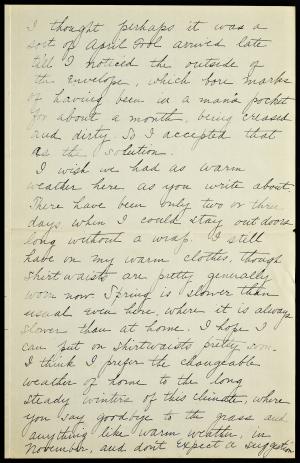 I thought perhaps it was a
sort of April Fool arrived late
till I noticed the outside of
the envelope, which bore marks
of having been in a man's pocket
for about a month, being creased
and dirty. So I accepted that
as the solution.
I wish we had as warm
weather here as you write about.
There have been only two or three
days when I could stay out doors
long without a wrap. I still
have on my warm clothes, though
shirtwaists are pretty generally
worn now. Spring is slower than
usual even here, where it is always
slower than at home. I hope I
can put on shirtwaists pretty soon.
I think I prefer the changeable
weather of home to the long
steady winters of this climate, where
you say goodbye to the grass and
anything like warm weather, in
November, and don't expect a suggestion